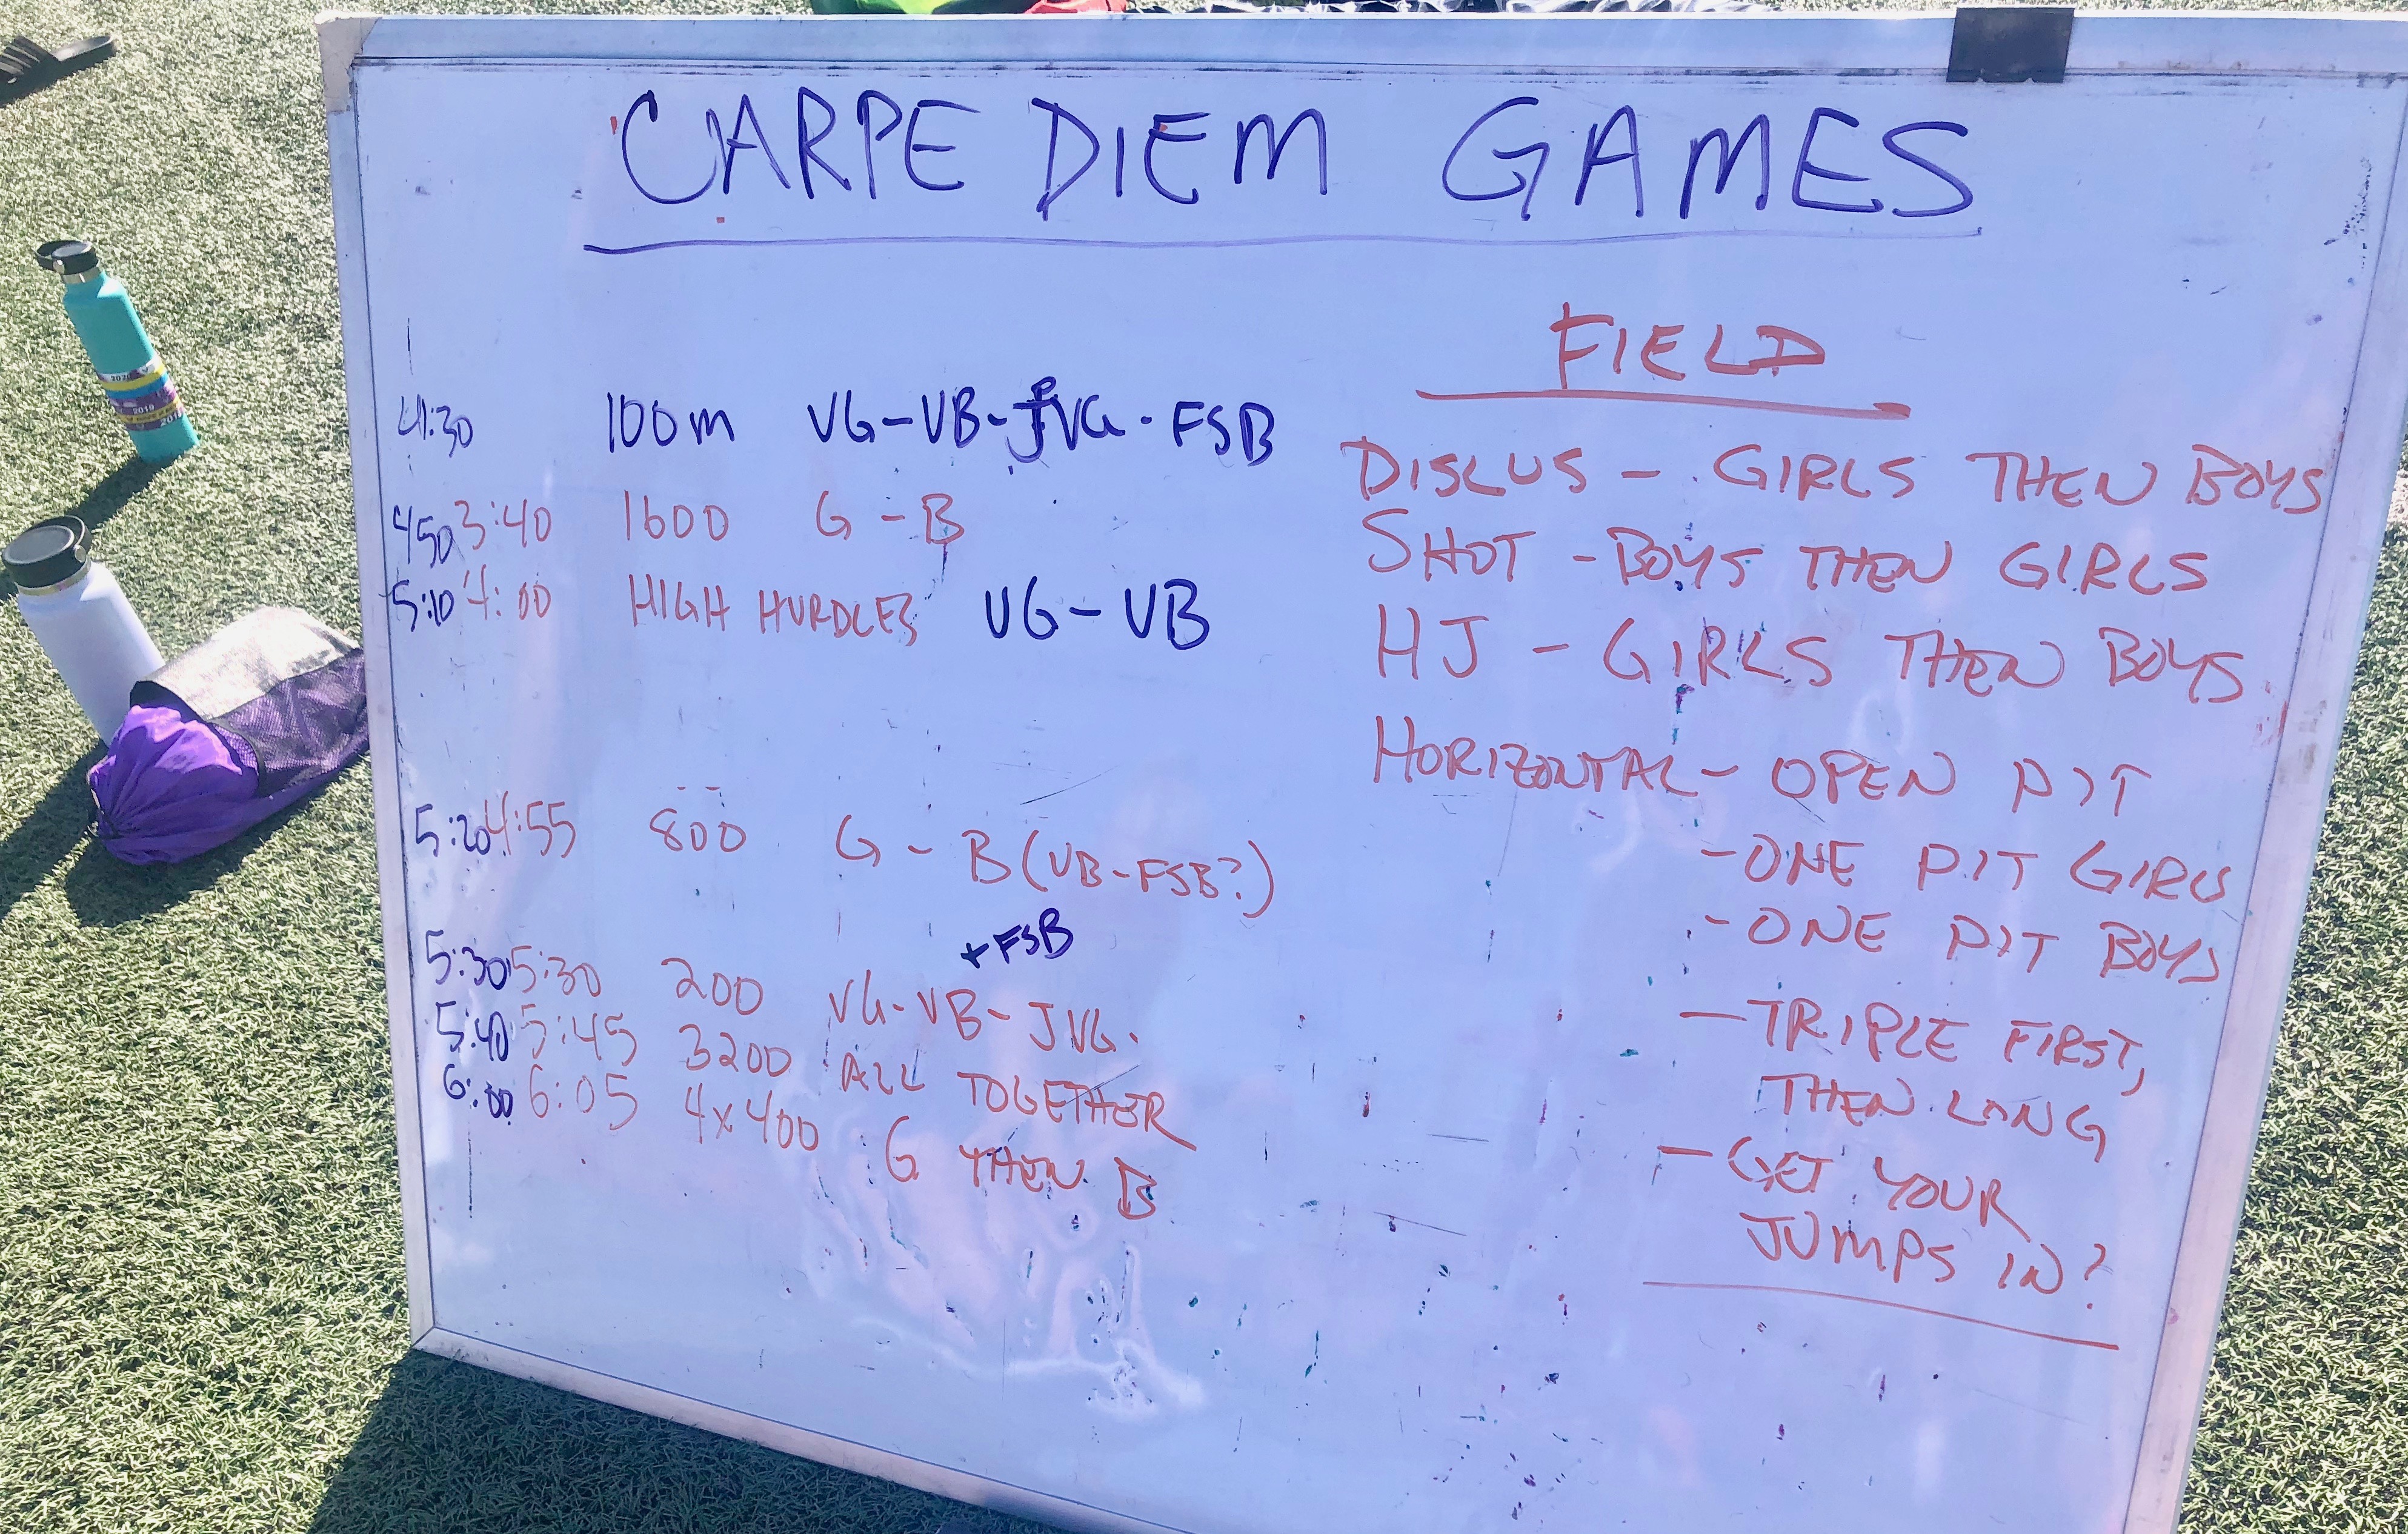 CARPE DIEM GAMES
4:30 100m VG-VB-JVG-FSB
450 3:40 1600 G-B
5:10 4:00 HIGH HURDLES VG-VB
5:20 4:55 800 G-B (VB-FSB?)
+FSB
5:30 5:30 200 VG-VB-JVG.
5:40 5:45 3200 ALL TOGETHER
6:00 6:05 4x400 G THEN B
FIELD
DISCUS - GIRLS THEN BOYS
SHOT - BOYS THEN GIRLS
HJ - GIRLS THEN BOYS
HORIZONTAL - OPEN PIT
- ONE PIT GIRLS
- ONE PIT BOYS
- TRIPLE FIRST,
THEN LONG
- GET YOUR
JUMPS IN?
2019